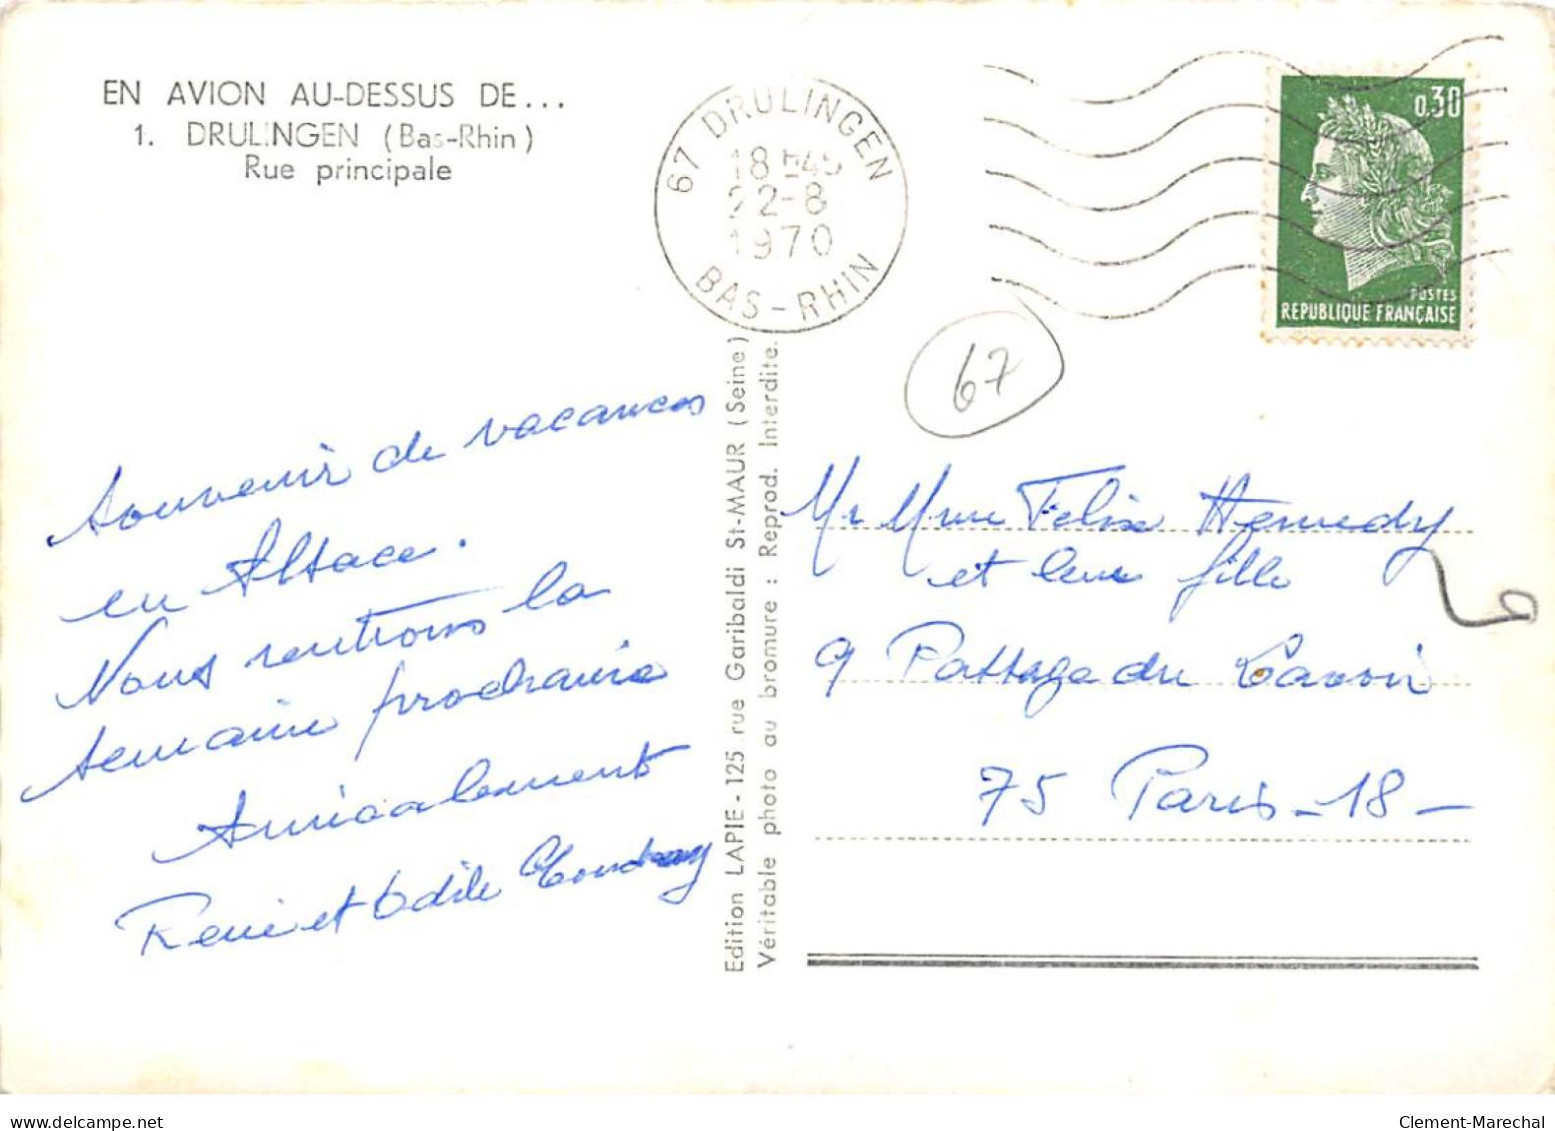 EN AVION AU-DESSUS DE...
1. DRULINGEN (Bas-Rhin)
Rue principale
67 DRULINGEN
18H45
22-8
1970
BAS-RHIN
0,30
POSTES
REPUBLIQUE FRANÇAISE
67
Souvenir de vacances
en Alsace.
Nous rentrons la
semaine prochaine
Amicalement
René et Odile
Edition LAPIE - 125 rue Garibaldi St-MAUR (Seine)
Véritable photo au bromure : Reprod. Interdite.
Mr Mme Felix
et leur fille
9 Passage du
75 Paris - 18 -
9
Clement-Marechal